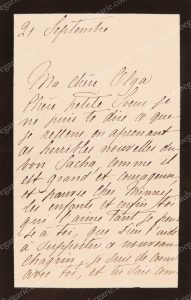 21 Septembre
Ma chère Olga
Pauvre petite Soeur je
ne puis te dire ce que
je ressens en apprenant
ces horribles nouvelles du
bon Sacha, comme il
est grand et courageux
et pauvre chère Minnie
les enfants et enfin toi
qui l'aime tant je pen-
se à toi, que Dieu t'aide
à supporter ce nouveau
chagrin, je suis de coeur
avec toi, et tu sais